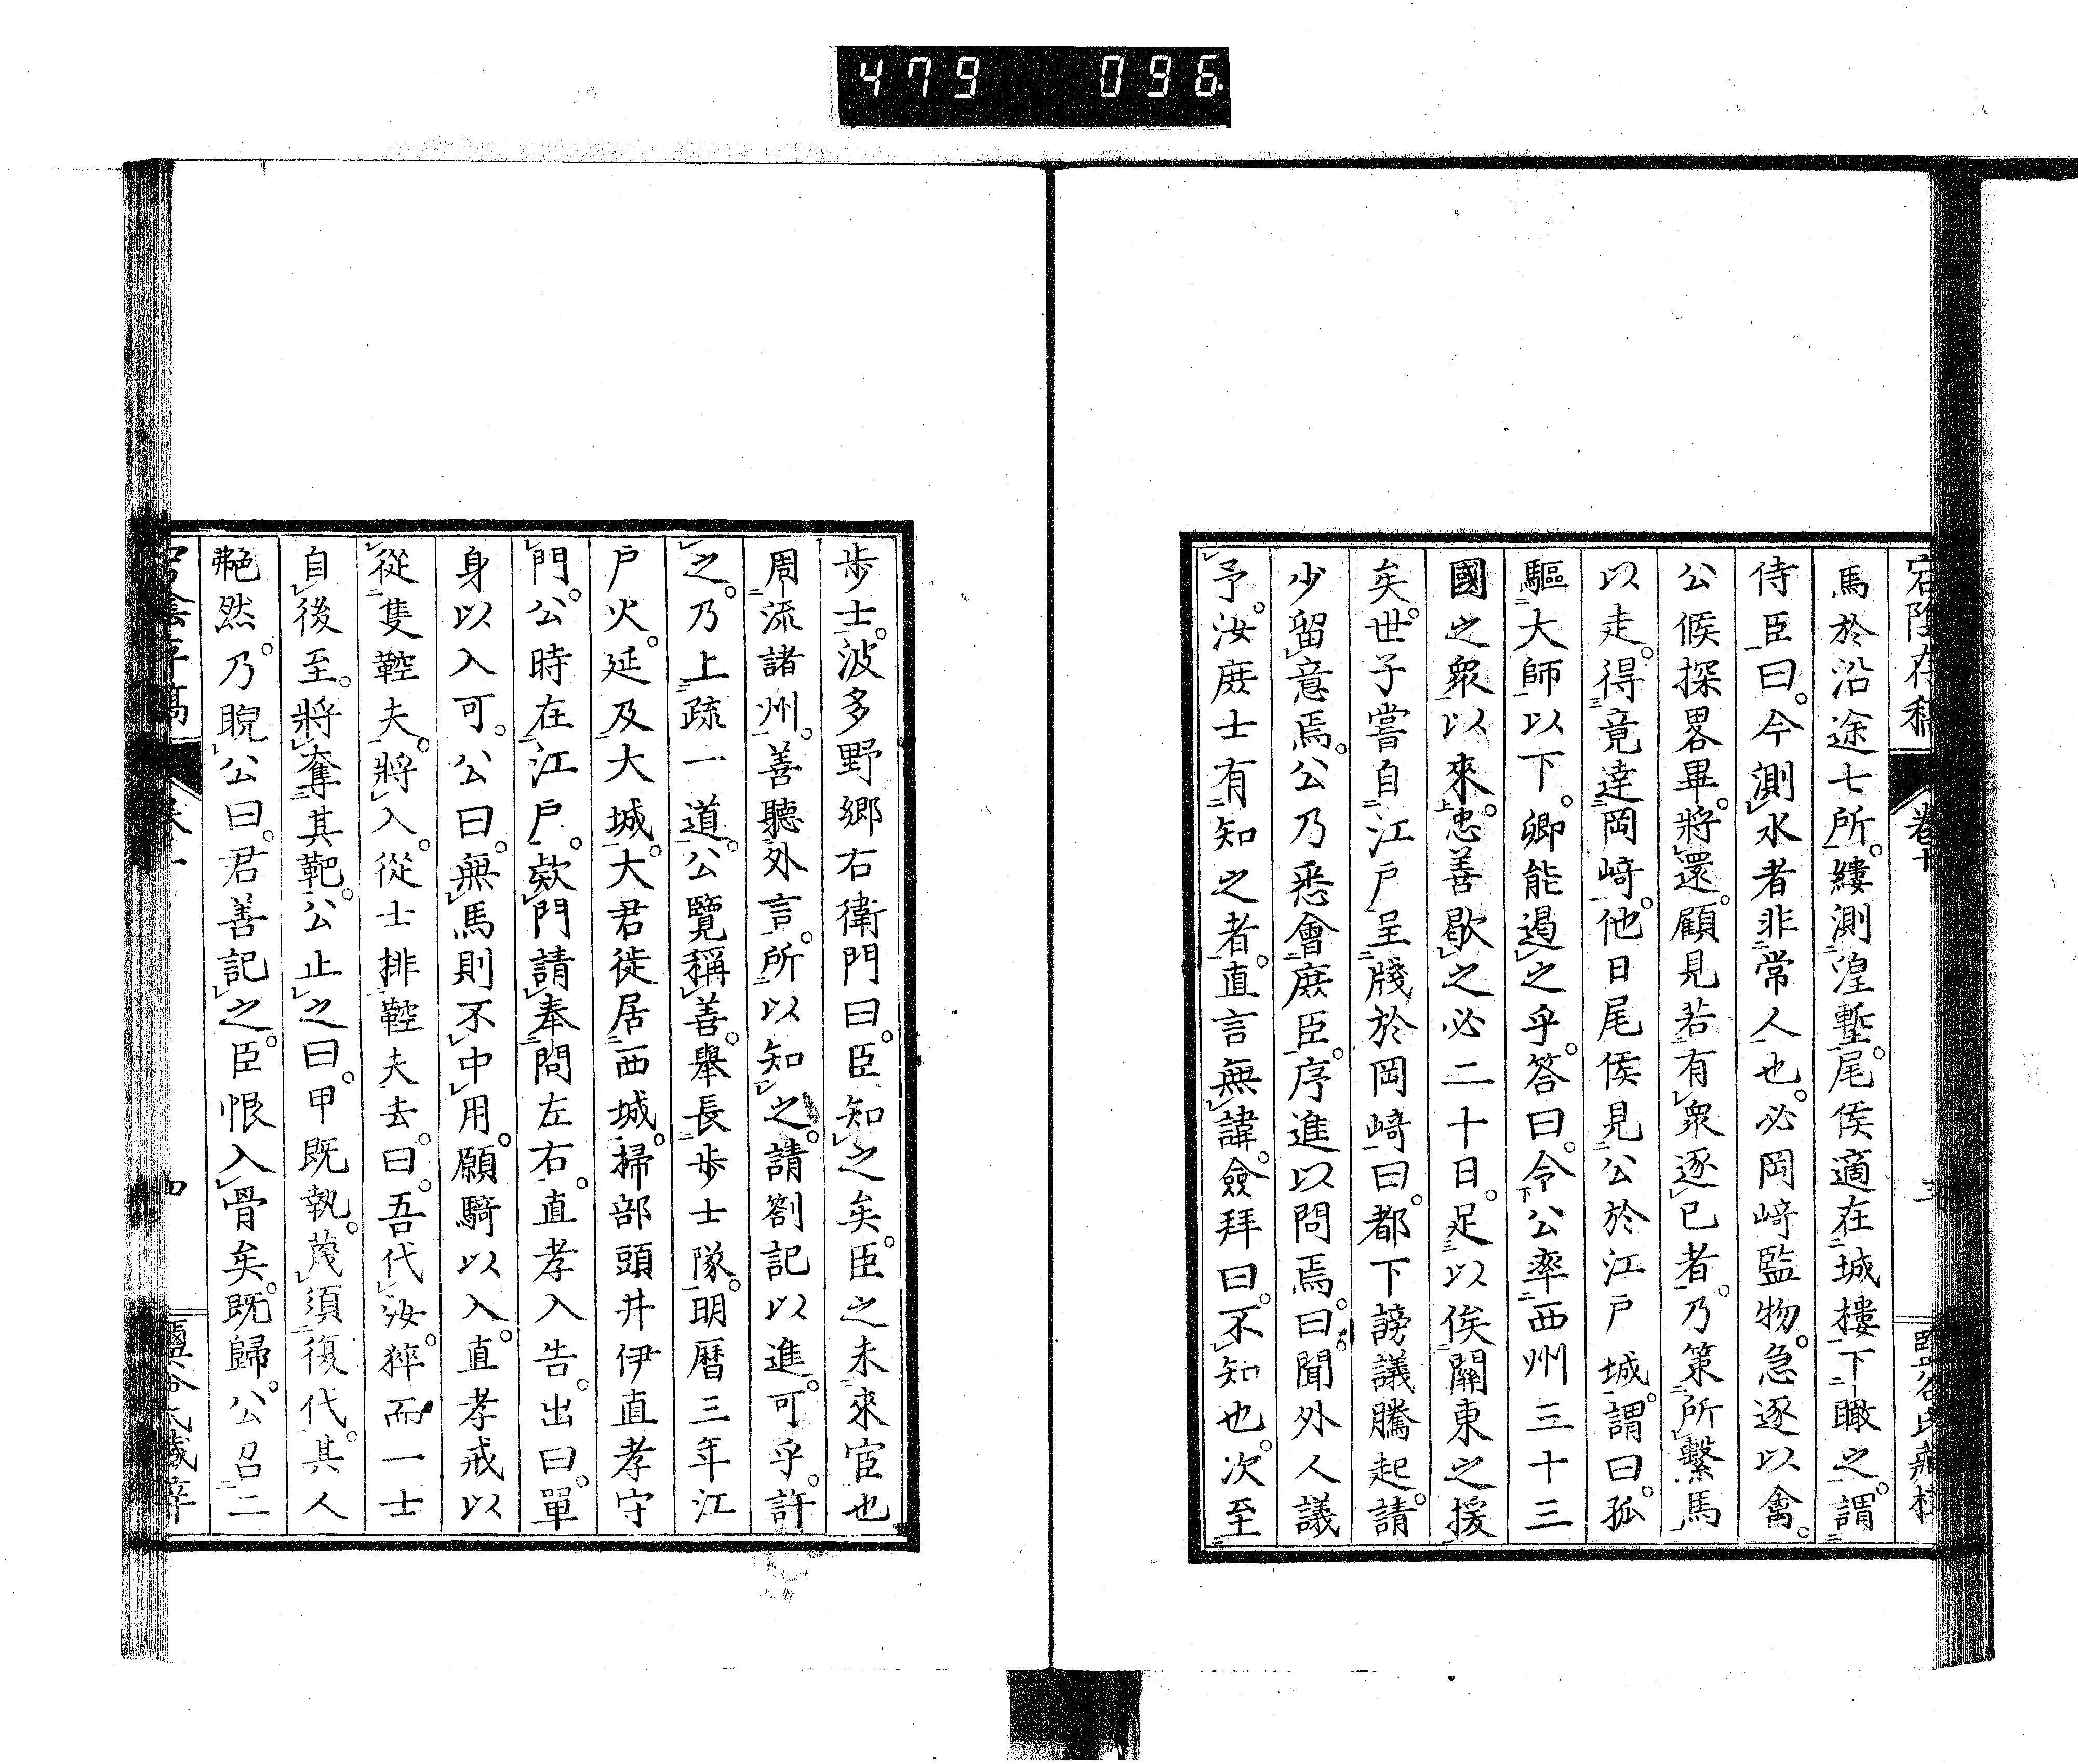 479 096
宕陰存稿 卷十 三
馬於沿途七所。縷測湟塹。尾侯適在城樓下瞰之。謂
侍臣曰。今測水者非常人也。必岡﨑監物。急逐以禽。
公候探畧畢。將還。顧見若有衆逐已者。乃策所繫馬
以走。得竟達岡﨑。他日尾侯見公於江戸城。謂曰。孤
驅大師以下。卿能遏之乎。答曰。令公率西州三十三
國之衆以來。忠善歇之必二十日。足以俟關東之援
矣。世子嘗自江戸呈牋於岡﨑曰。都下謗議騰起。請
少留意焉。公乃悉會庶臣。序進以問焉。曰。聞外人議
予。汝庶士有知之者。直言無諱。僉拜曰。不知也。次至
歩士。波多野郷右衛門曰。臣知之矣。臣之未來宦也
周流諸州。善聽外言。所以知之。請劄記以進。可乎。許
之。乃上疏一道。公覽稱善。舉長歩士隊。明暦三年江
戸火。延及大城。大君徙居西城。掃部頭井伊直孝守
門。公時在江戸。欵門請奉問左右。直孝入告。出曰。單
身以入可。公曰。無馬則不中用。願騎以入。直孝戒以
從隻鞚夫。將入。從士排鞚夫去。曰。吾代汝。猝而一士
自後至。將奪其靶。公止之曰。甲既執。蔑須復代。其人
艴然。乃睨公曰。君善記之。臣恨入骨矣。既歸。公召二